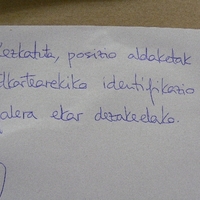 kezkatuta, posizio aldaketak
elkartearekiko identifikazio
alera ekar dezaketelako.